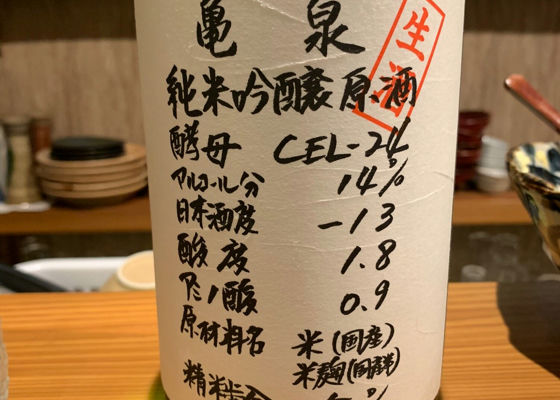 亀泉
生酒
純米吟醸原酒
酵母 CEL-24
アルコール分 14%
日本酒度 -13
酸度 1.8
アミノ酸 0.9
原材料名 米(国産)
米麹(国産米)
精米歩合